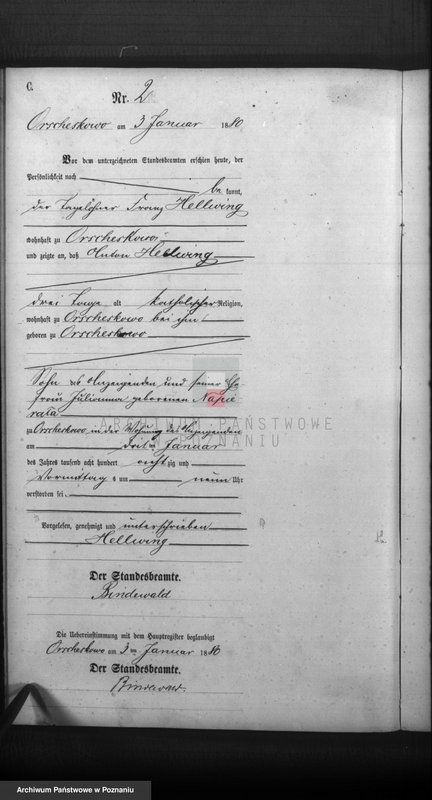 C.
Nr. 2
Orscheskowo am 3 Januar 1880
Vor dem unterzeichneten Standesbeamten erschien heute, der
Persönlichkeit nach
be kannt,
der Tagelöhner Franz Hellwing
wohnhaft zu Orscheskowo
und zeigte an, daß Anton Hellwing
drei Tage alt katholischer Religion,
wohnhaft zu Orscheskowo bei ihm
geboren zu Orscheskowo
Sohn des Anzeigenden und seiner Ehe
frau Julianna geborenen Napie
rala
zu Orscheskowo in der Wohnung des Anzeigenden
am dritten Januar
des Jahres tausend acht hundert achtzig und
Vormittags um neun Uhr
verstorben sei.
Vorgelesen, genehmigt und unterschrieben
Hellwing
Der Standesbeamte.
Bindewald
Die Uebereinstimmung mit dem Hauptregister beglaubigt
Orscheskowo am 3ten Januar 1880
Der Standesbeamte.
Bindewald
ARCHIWUM PAŃSTWOWE
W POZNANIU
Archiwum Państwowe w Poznaniu